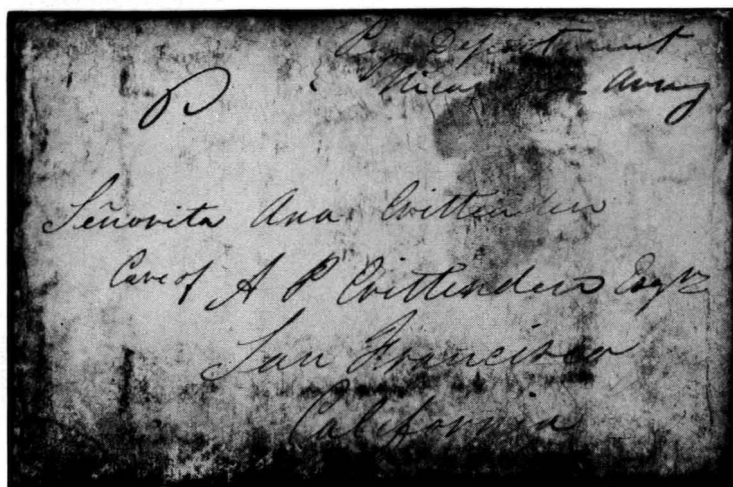 Pay Department
Nicaraguan Army
P
Señorita Ana Crittenden
Care of A P Crittenden Esqr
San Francisco
California